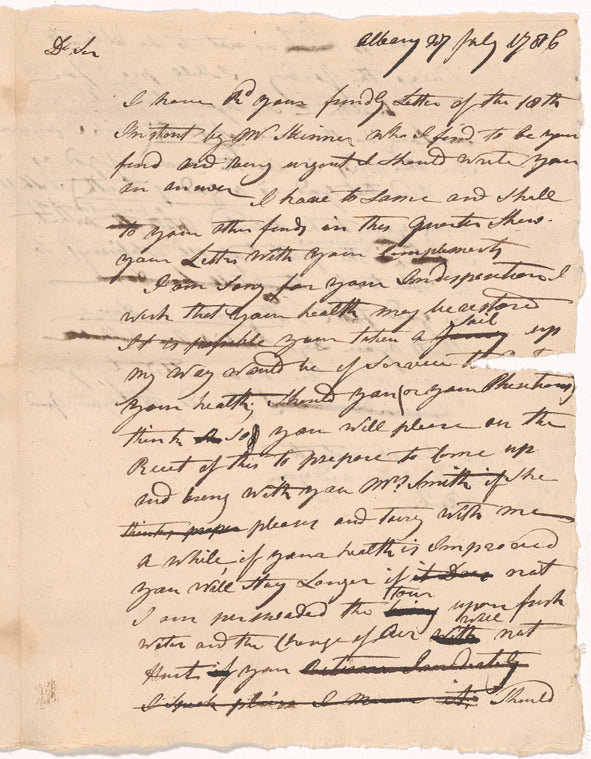 Albany 27 July 1786
Dr Sir
I have Rd your frindly Letter of the 18th
Instant by Mr Skinner who I find to be your
frind and very urgent I should write you
an answer I have to Same and shall
to your other frinds in this Quarter Shew
your Letter with your Complements
I am Sorry for your Indisposition I
wish that your health may be restored
It is posible your taken a sail up
my way would be of Service to
your health, Should you (or your Phisitions)
think so you will please on the
Recet of this to prepare to Come up
and bring with you Mrs Smith if She
thinks proper please and tarry with me
a while if your health is Improved
you will Stay Longer if it Does not
I am persuaded the Tour upon fresh
water and the Change of Air will not
Hurt if you
I Speak plain I mean it, Should